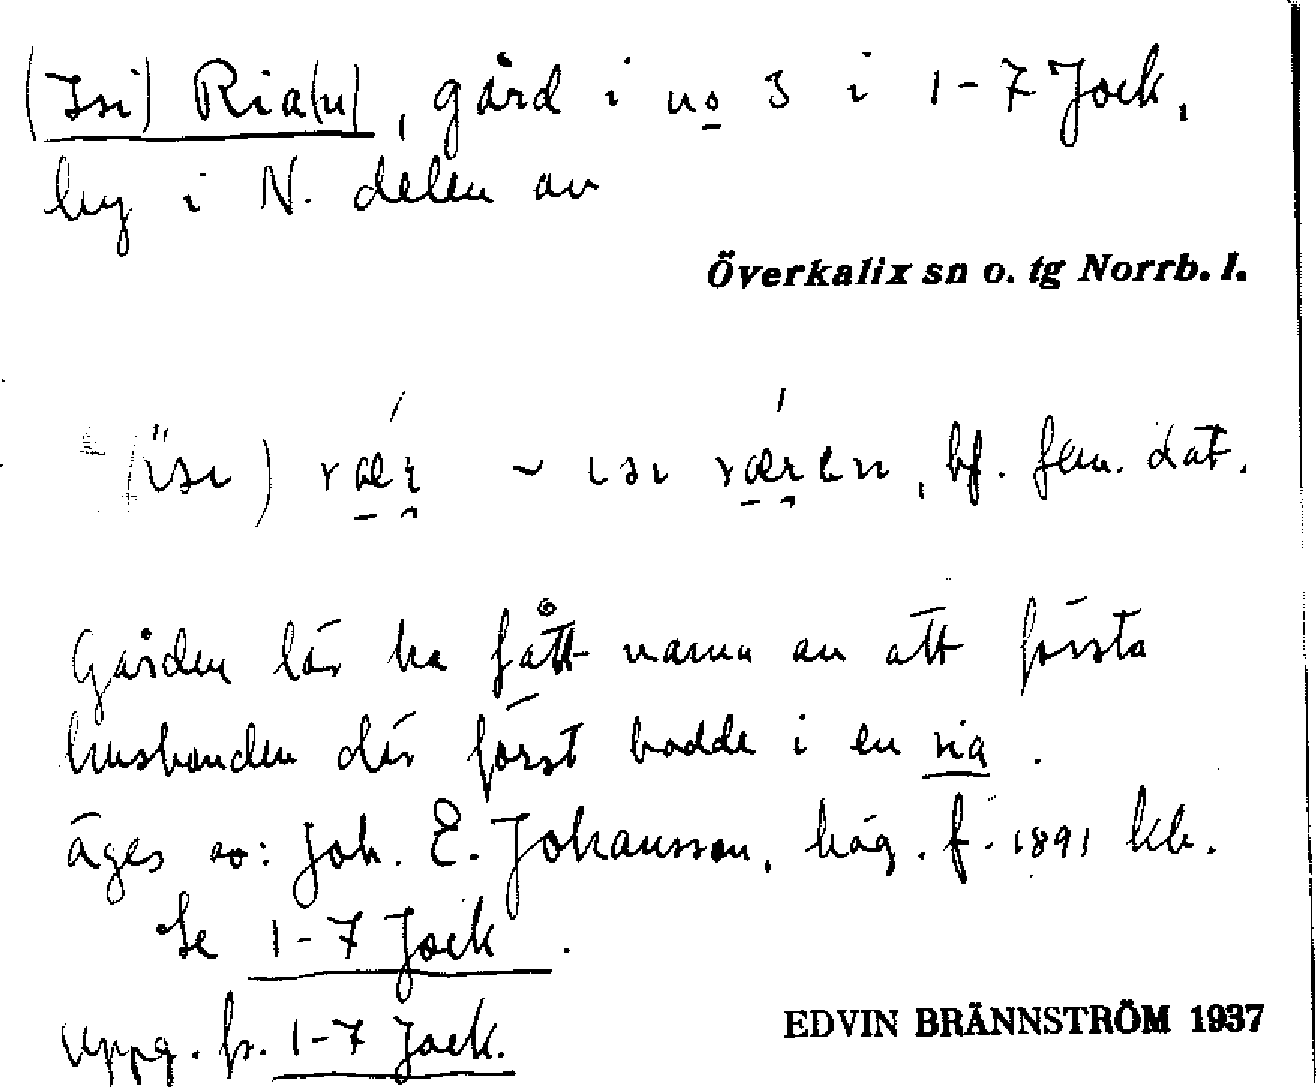 (Isi) Ria(n), gård i no 3 i 1-7 Jock,
by i N. delen av
Överkalix sn o. tg Norrb. l.
(ısı) rær ~ ısı ræren, bf. fem. dat.
Gården lär ha fått namn av att första
husbonden där först bodde i en ria.
äges av: Joh. E. Johansson, häg. f. 1891 kb.
Se 1-7 Jock.
Uppg. fr. 1-7 Jock.
EDVIN BRÄNNSTRÖM 1937